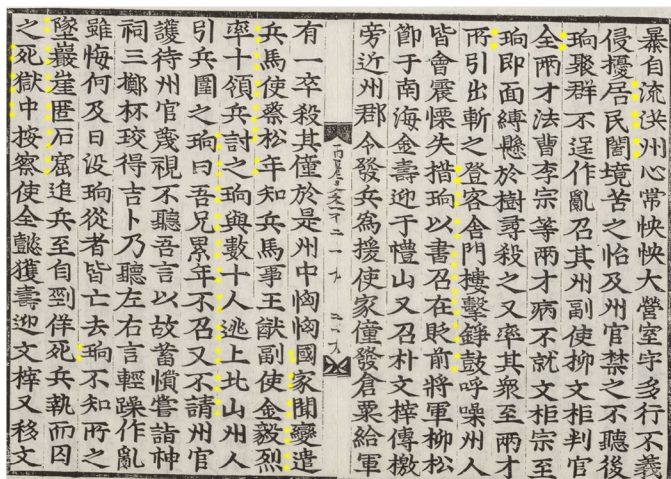 暴自流洪州心常怏怏大營室宇多行不義
侵擾居民闔境苦之怡及州官禁之不聽後
珦聚群不逞作亂召其州副使柳文柜判官
全兩才法曹李宗等兩才病不就文柜宗至
珦即面縛懸於樹尋殺之又率其衆至兩才
所引出斬之登客舍門樓擊錚鼓呼噪州人
皆會震慄失措珦以書召在貶前將軍柳松
節于南海金壽迎于禮山又召朴文梓傳檄
旁近州郡令發兵爲援使家僮發倉粟給軍
有一卒殺其僮於是州中恟恟國家聞變遣
兵馬使蔡松年知兵馬事王猷副使金毅烈
率十領兵討之珦與數十人逃上北山州人
引兵圍之珦曰吾兄累年不召又不請州官
護待州官蔑視不聽吾言以故蓄憤嘗詣神
祠三擲杯珓得吉卜乃聽左右言輕躁作亂
雖悔何及日沒珦從者皆亡去珦不知所之
墜巖崖匿石窟追兵至自剄佯死兵執而囚
之死獄中按察使全懿獲壽迎文梓又移文